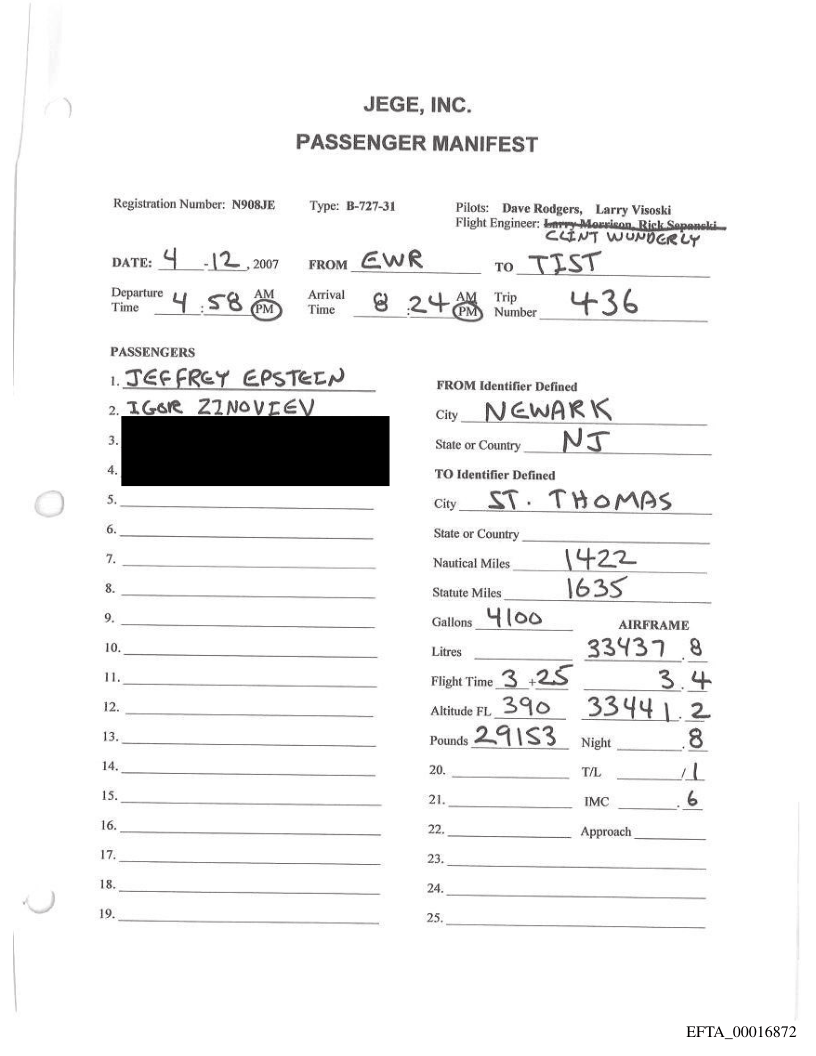 JEGE, INC.
PASSENGER MANIFEST
Registration Number: N908JE Type: B-727-31 Pilots: Dave Rodgers, Larry Visoski
Flight Engineer: Larry Morrison, Rick Sepanski
CLINT WUNDERLY
DATE: 4 -12, 2007 FROM EWR TO TIST
Departure Time 4:58 AM PM Arrival Time 8:24 AM PM Trip Number 436
PASSENGERS
1. JEFFREY EPSTEIN
2. IGOR ZINOVIEV
3.
4.
5.
6.
7.
8.
9.
10.
11.
12.
13.
14.
15.
16.
17.
18.
19.
FROM Identifier Defined
City NEWARK
State or Country NJ
TO Identifier Defined
City ST. THOMAS
State or Country
Nautical Miles 1422
Statute Miles 1635
Gallons 4100 AIRFRAME
Litres 33437.8
Flight Time 3+25 3.4
Altitude FL 390 33441.2
Pounds 29153 Night .8
20. T/L /1
21. IMC .6
22. Approach
23.
24.
25.
EFTA_00016872